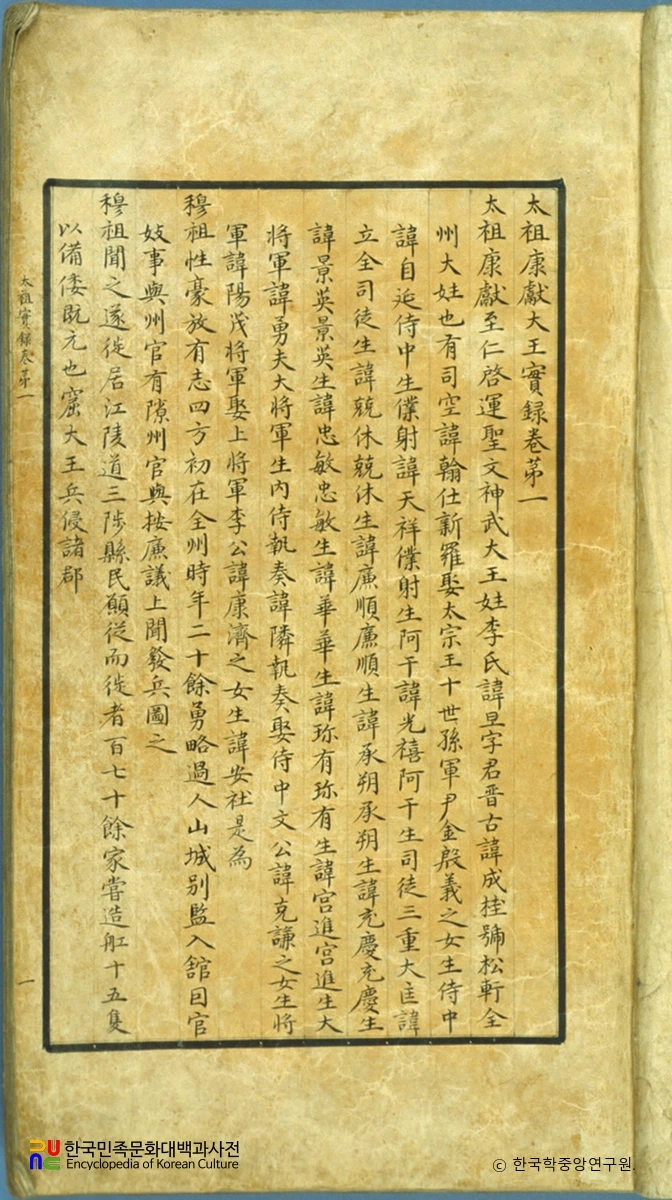 太祖康獻大王實錄卷第一
太祖康獻至仁啓運聖文神武大王姓李氏諱旦字君晋古諱成桂號松軒全
州大姓也有司空諱翰仕新羅娶太宗王十世孫軍尹金殷義之女生侍中
諱自延侍中生僕射諱天祥僕射生阿干諱光禧阿干生司徒三重大匡諱
立全司徒生諱兢休兢休生諱廉順廉順生諱承朔承朔生諱充慶充慶生
諱景英景英生諱忠敏忠敏生諱華華生諱珎有珎有生諱宮進宮進生大
將軍諱勇夫大將軍生內侍執奏諱隣執奏娶侍中文公諱克謙之女生將
軍諱陽茂將軍娶上將軍李公諱康濟之女生諱安社是為
穆祖性豪放有志四方初在全州時年二十餘勇略過人山城別監入舘因官
妓事與州官有隙州官與按廉議上聞發兵圖之
穆祖聞之遂徙居江陵道三陟縣民願從而徙者百七十餘家嘗造舡十五隻
以備倭旣元也窟大王兵侵諸郡
太祖實錄卷第一
一
한국민족문화대백과사전
Encyclopedia of Korean Culture
ⓒ 한국학중앙연구원.